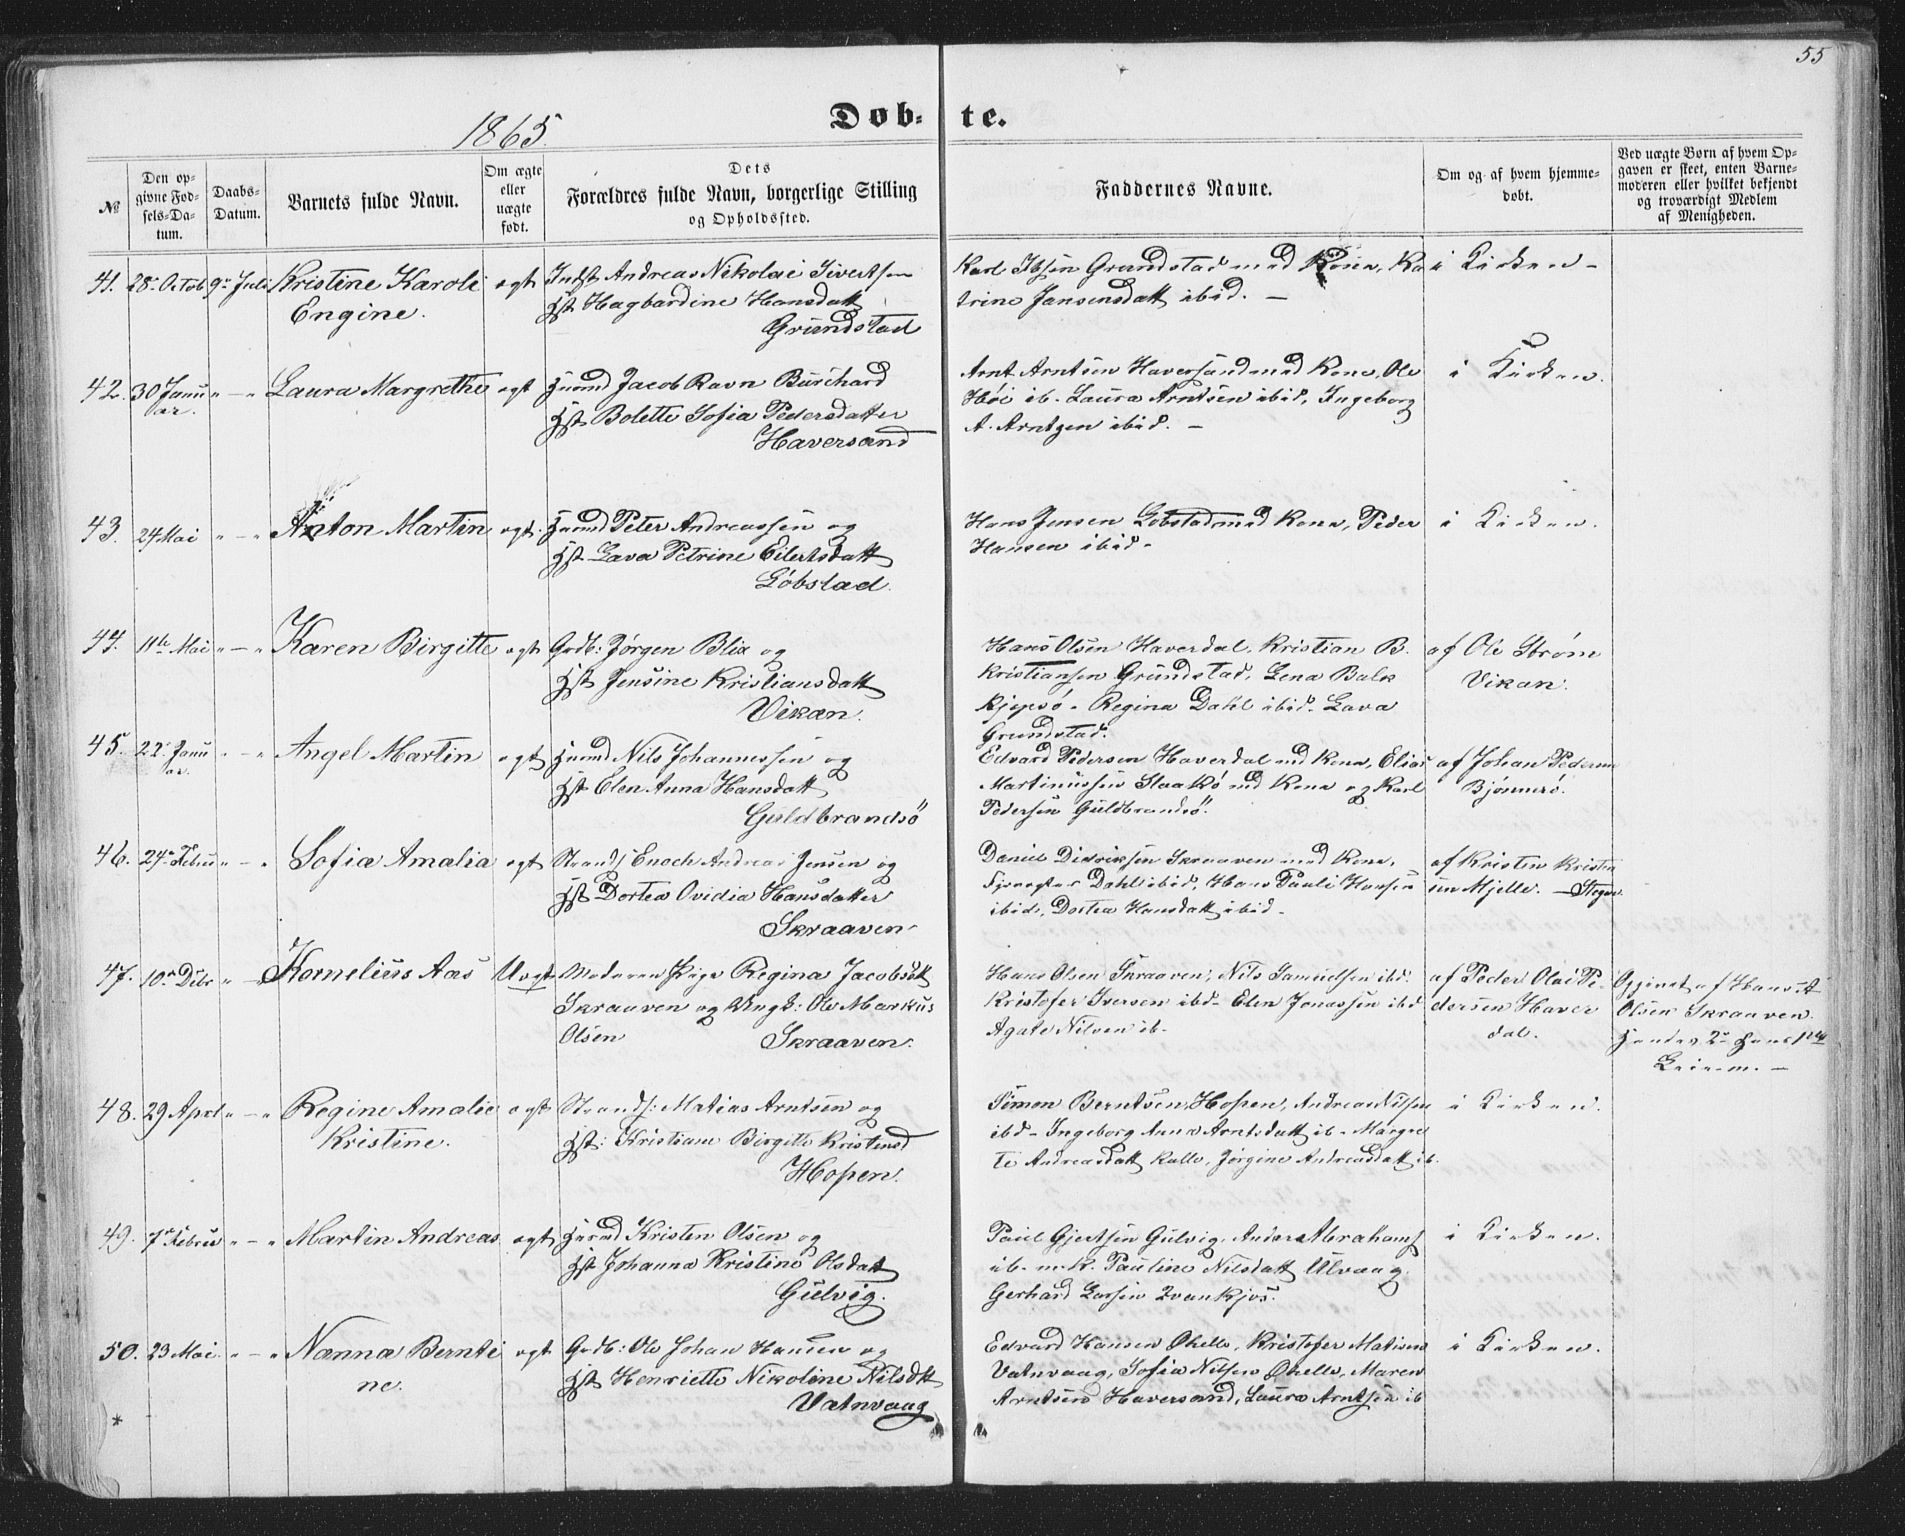 55
1865.
Døb- te.
№
Den opgivne Fødsels-Datum.
Daabs-Datum.
Barnets fulde Navn.
Om ægte eller uægte født.
Dets Forældres fulde Navn, borgerlige Stilling og Opholdssted.
Faddernes Navne.
Om og af hvem hjemmedøbt.
Ved uægte Børn af hvem Opgaven er skeet, enten Barnemoderen eller hvilket bekjendt og troværdigt Medlem af Menigheden.
41. 28 Octob 9 Juli Kristine Karoli ægt Indst Andreas Nikolai Sivertsen Karl Ibsen Grundstad med Kone, Ka i Kirken -
Engine. Hst Hagbardine Hansdatt trine Jansensdatt ibid. -
Grundstad
42. 30 Janu " - " Laura Margrethe ægt Huusmd Jacob Ravn Burchard Arnt Arntsen Haversand med Kone, Ole i Kirken.
ar. Hst Bolette Sofia Pedersdatter Høi ib. Laura Arntsen ibid, Ingeborg
Haversand A. Arntzen ibid. -
43. 24 Mai " - " Anton Martin ægt. Huusmd Peter Andreassen og Hans Jensen Løbstad med Kone, Peder i Kirken.
Hst Lava Petrine Eilertsdatt Hansen ibid -
Løbstad.
44. 11te Mai " - " Karen Birgitte ægt Grdb: Jørgen Blix og Hans Olsen Haverdal, Kristian B. af Ole Strøm
Hst Jensine Kristiansdatt Kristiansen Grundstad, Lena Balk Vikan.
Vikan. - Regina Dahl ibid. Lava
Grundstad.
45. 22 Janu " - " Angel Martin ægt Huusmd Nils Johannessen og Edvard Pedersen Haverdal md Kone, Elias af Johan Pedersen
ar. Hst Elen Anna Hansdatt Martinussen med Kone og Karl
Guldbrandsö Pedersen Guldbrandsö.
46. 24 Febru " - " Sofia Amalia ægt Strands Enoch Andreas Jensen og Daniel Didriksen Skraaven med Kone, af Kristen Kristen
Hst Dortea Ovidia Hansdatter Dahl ibid, Hans Pauli Hansen sen Mjelle.
Skraaven ibid, Dortea Hansdatt ibid -
47. 10 Debr " - " Kornelius Aas Uægt Moderen Pige Regina Jacobsdtt Hans Olsen Skraaven, Nils Samuelsen ibd. af Peder Olai Pe- Opgivet af Hans A
Skraaven og Ungk: Ole Markus Kristofer Iversen ibd - Elen Jonassen ibd dersen Haver Olsen Skraaven.
Olsen Skraaven. Agate Nilsen ib - dal.
Leierm. -
48. 29 April " - " Regine Amalie ægt Strands: Matias Arntsen og Simon Berntsen, Hopen, Andreas Nilsen i Kirken.
Kristine. Hst: Kristiane Birgitte Kristensd ibd - Ingeborg Anna Arntsdatt ib - Margre
Hopen. te Andreasdatt, Jørgine Andreasdatt ib.
49. 7 Febru " - " Martin Andreas ægt Huusmd Kristen Olsen og Paul Gjertsen Gulvig, Anders Abrahams i Kirken.
Hst Johanna Kristine Olsdatt ib. m. K. Pauline Nilsdatt Ulvaag.
Gulvig. Gerhard Larsen
50. 23 Mai " - " Nanna Bernti ægt Grdb: Ole Johan Hansen og Edvard Hansen, Kristofer i Kirken.
ne. Hst Henriette Nikoline Nilsdtt Vatnvaag, Sofia Nilsen, Maren
Vatnvaag Arntsen Haversand, Laura Arntsen ib
*